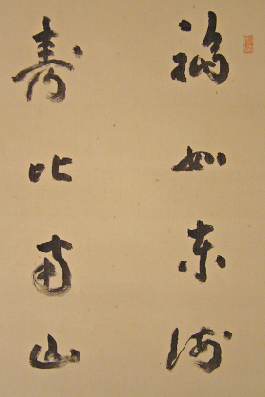 福如東海
寿比南山